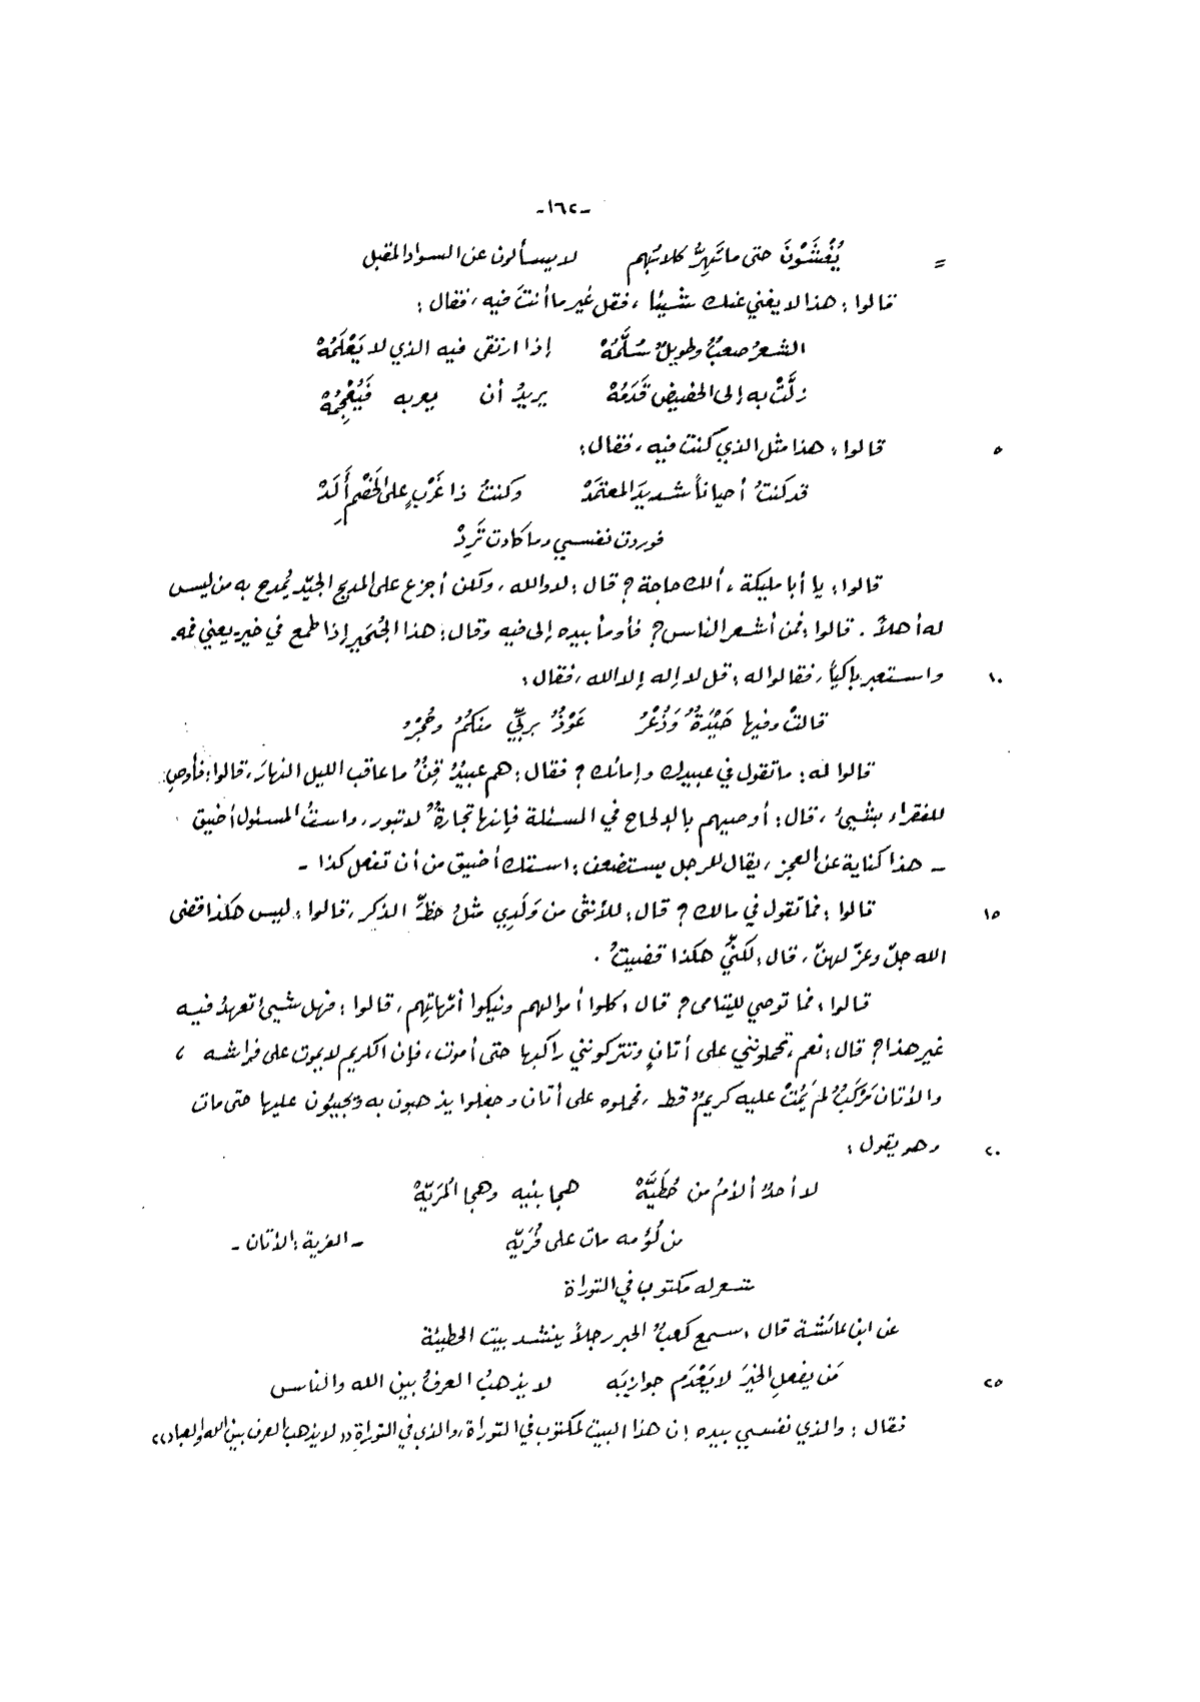 -١٦٢-
= يُغْشَوْنَ حتى ما تَهِرُّ كلابُهم لا يسألون عن السواد المقبل
قالوا: هذا لا يغني عنك شيئا، فقل غير ما أنتَ فيه، فقال:
الشعرُ صعبٌ وطويلٌ سُلَّمُهْ إذا ارتقى فيه الذي لا يَعْلَمُهْ
زلَّتْ به إلى الحضيضِ قَدَمُهْ يريدُ أن يعربه فَيُعْجِمُهْ
٥ قالوا: هذا مثل الذي كنت فيه، فقال:
قد كنتُ أحياناً شديدَ المعتمَدْ وكنتُ ذا غَرْبٍ على الخَصْمِ أَلَدْ
فوردت نفسي وما كادت تَرِدْ
قالوا: يا أبا مليكة، ألك حاجة؟ قال: لا والله، ولكن أجزع على المديح الجيّد يُمدح به من ليس
له أهلاً. قالوا: فمن أشعر الناس؟ فأومأ بيده إلى فيه وقال: هذا الجُحَيرِ إذا طمع في خير، يعني فمه.
١٠ واستعبر باكياً، فقالوا له: قل لا إله إلا الله، فقال:
قالتْ وفيها حَيْدَةٌ وَذُعْرُ عَوْذٌ بربّي منكمُ وحُجْرُ
قالوا له: ما تقول في عبيدك وإمائك؟ فقال: هم عبيدٌ قِنٌّ ما عاقب الليل النهارَ، قالوا: فأوصِ
للفقراء بشيئ، قال: أوصيهم بالإلحاح في المسئلة فإنها تجارةٌ لا تبور، واستُ المسئول أضيق
- هذا كناية عن العجز، يقال للرجل يستضعف: استك أضيق من أن تفعل كذا -
١٥ قالوا: فما تقول في مالك؟ قال: للأنثى من وَلَدِي مثلُ حظِّ الذكر، قالوا: ليس هكذا قضى
الله جلّ وعزّ لهنّ، قال: لكنّي هكذا قضيتُ.
قالوا: فما توصي لليتامى؟ قال: كلوا أموالهم ونيكوا أمّهاتِهم، قالوا: فهل شيئٌ تعهدُ فيه
غير هذا؟ قال: نعم، تحملونني على أتانٍ وتتركونني راكبها حتى أموت، فإن الكريم لا يموت على فراشه،
والأتان مَرْكَبٌ لم يَمُتْ عليه كريمٌ قط، فحملوه على أتان وجعلوا يذهبون به ويجيئون عليها حتى مات
٢٠ وهو يقول:
لا أحدٌ ألأمُ من حُطَيَّهْ هجا بنيه وهجا المُرَيّهْ
من لُؤمه مات على فُرَيّهِ - الفرية: الأتان -
شعر له مكتوب في التوراة
عن ابن عائشة قال: سمع كعبٌ الحبر رجلاً ينشد بيت الحطيئة
٢٥ مَن يفعلِ الخيرَ لا يَعْدَم جوازيَه لا يذهبُ العرفُ بين الله والناس
فقال: والذي نفسي بيده إن هذا البيت لمكتوب في التوراة، والذي في التوراةِ ,, لا يذهب العرف بين الله والعباد ,,